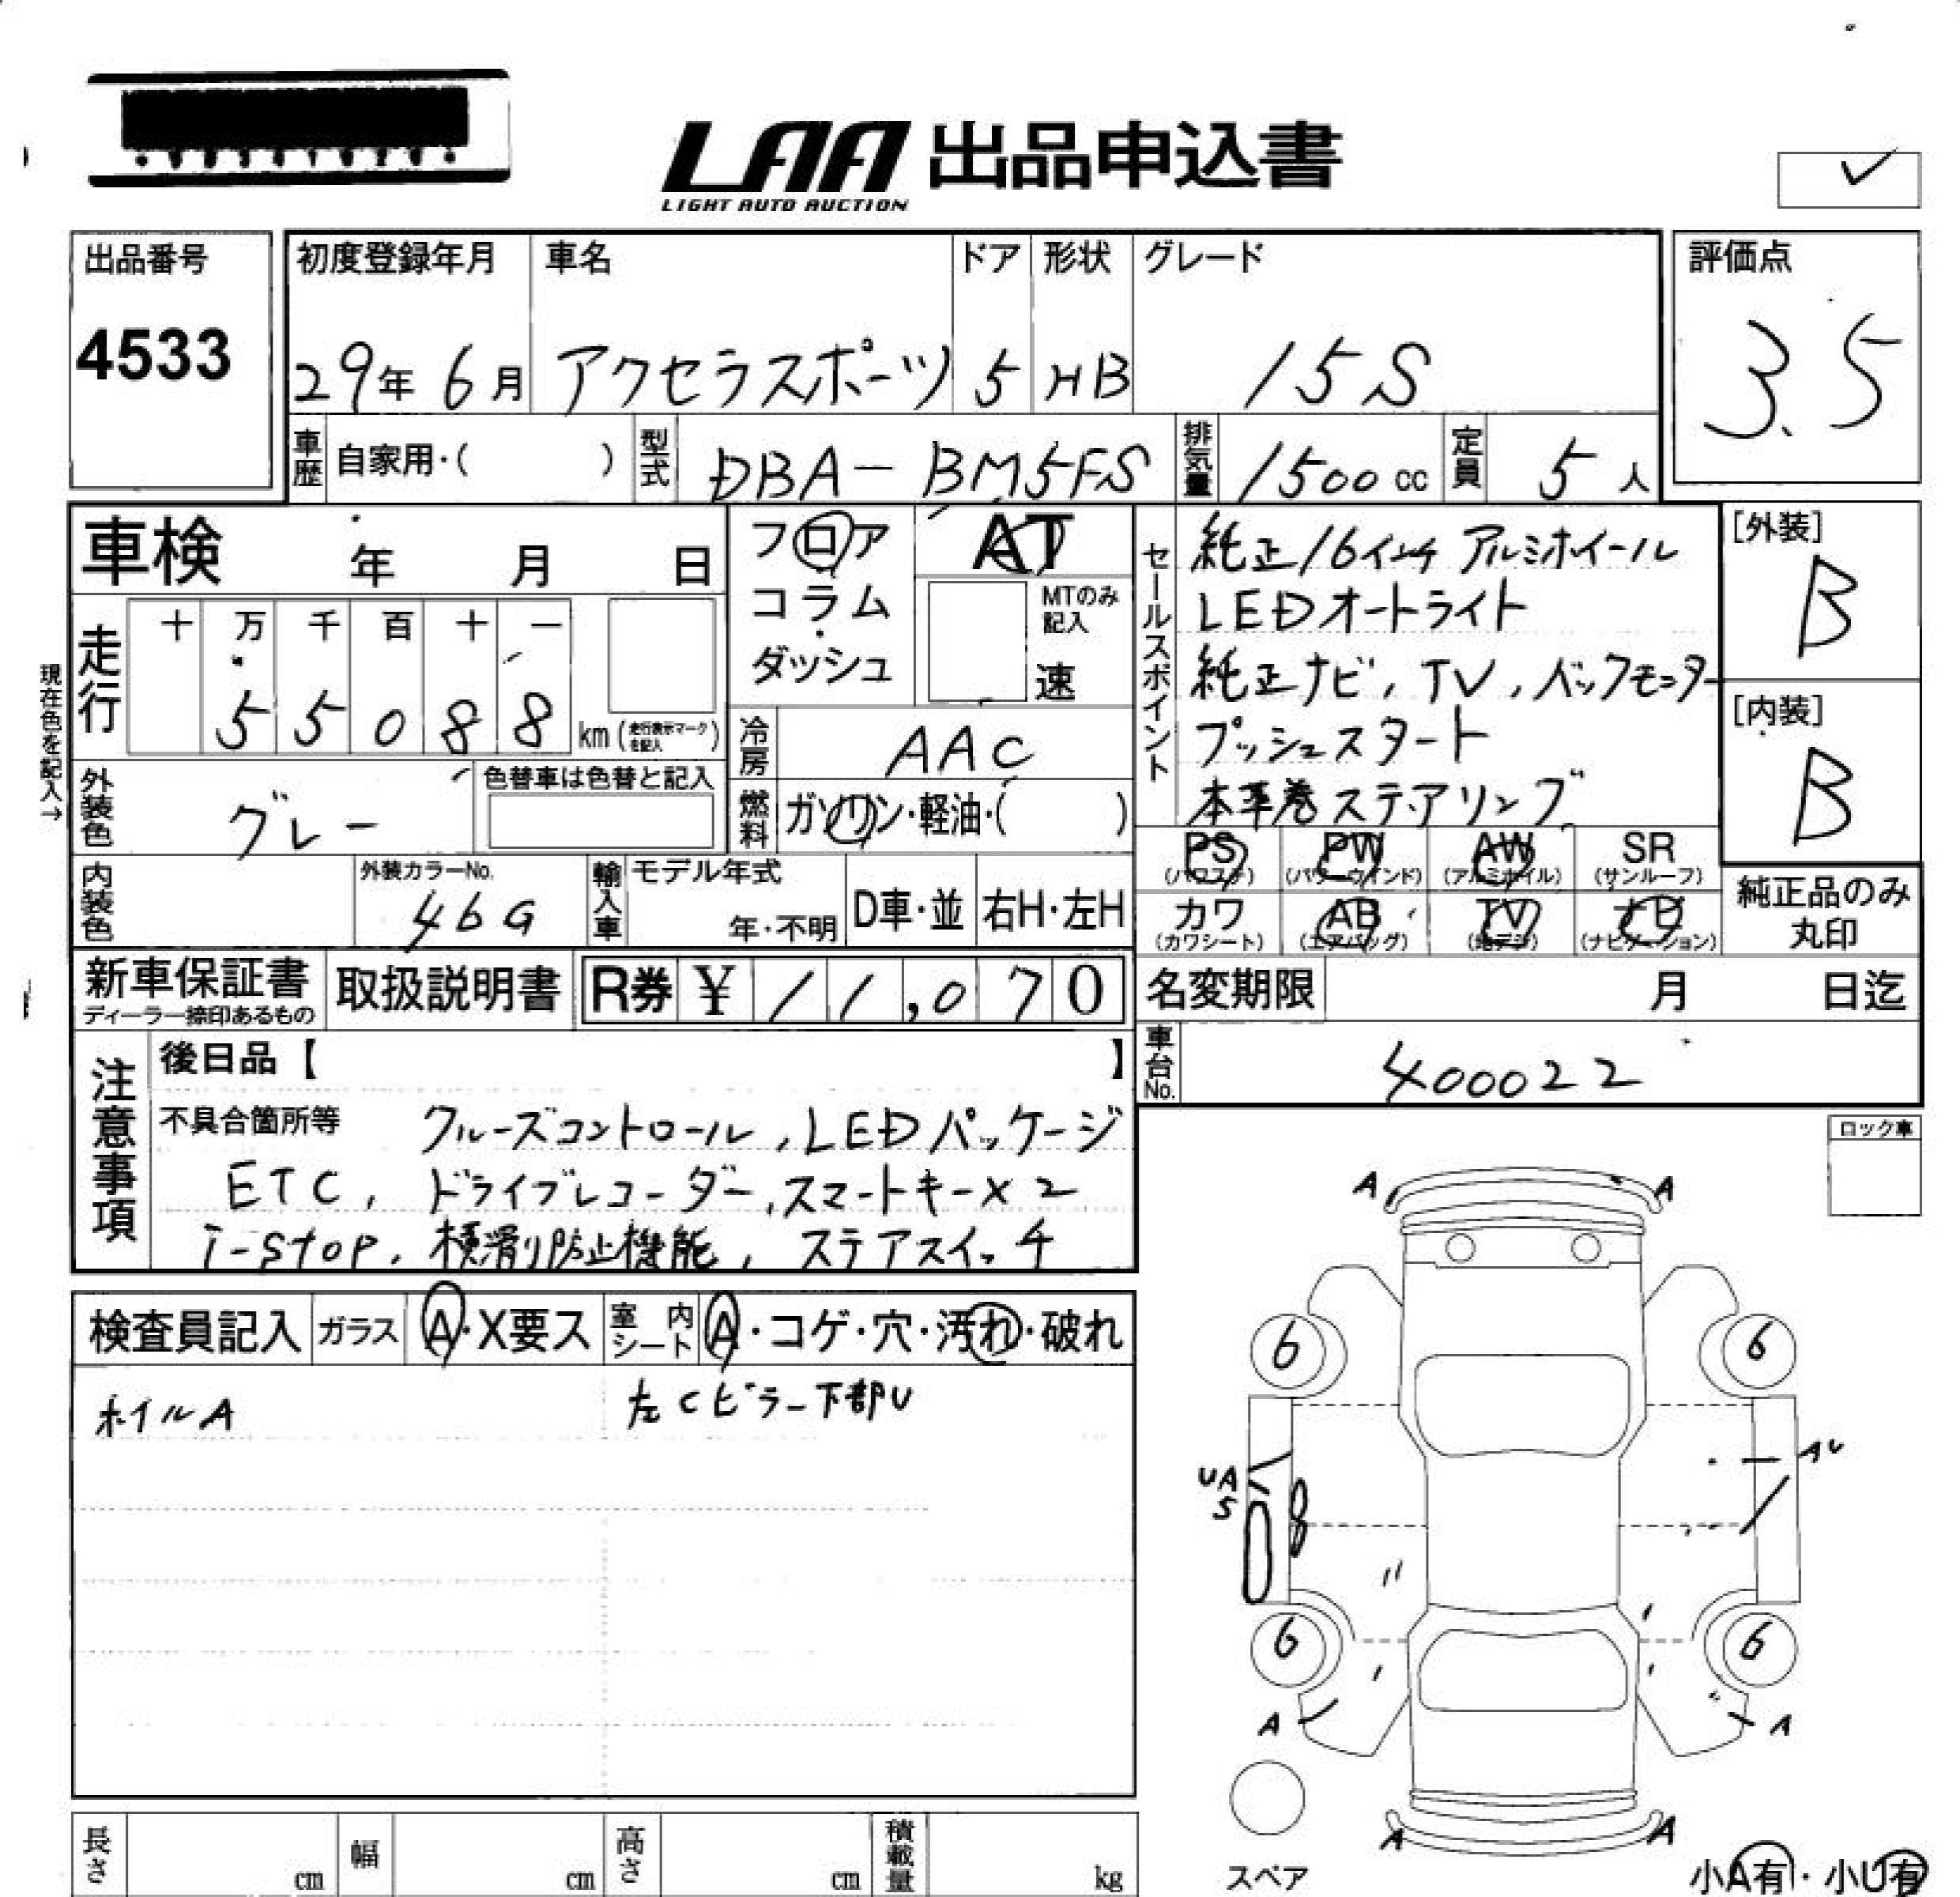 LAA 出品申込書
LIGHT AUTO AUCTION
出品番号
4533
初度登録年月
29年 6月
車名
アクセラスポーツ
ドア
5
形状
HB
グレード
15S
評価点
3.5
車歴 自家用・( )
型式 DBA-BM5FS
排気量 1500 cc
定員 5人
車検 年 月 日
フロア
コラム
・
ダッシュ
AT
MTのみ
記入
速
セールスポイント
純正16インチ アルミホイール
LEDオートライト
純正ナビ, TV, バックモニター
プッシュスタート
本革巻ステアリング
[外装]
B
[内装]
B
現在色を記入→
走行
十 万 千 百 十 一
5 5 0 8 8
km (走行表示マークを記入)
冷房 AAC
外装色 グレー
色替車は色替と記入
燃料 ガソリン・軽油・( )
内装色
外装カラーNo.
46G
輸入車
モデル年式
年・不明
D車・並
右H・左H
PS (パワステ)
PW (パワーウインド)
AW (アルミホイル)
SR (サンルーフ)
カワ (カワシート)
AB (エアバッグ)
TV (地デジ)
ナビ (ナビゲーション)
純正品のみ
丸印
新車保証書
ディーラー捺印あるもの
取扱説明書
R券 ¥ 11,070
名変期限 月 日迄
車台No. 400022
注意事項
後日品【 】
不具合箇所等 クルーズコントロール, LEDパッケージ
ETC, ドライブレコーダー, スマートキー×2
i-stop, 横滑り防止機能, ステアスイッチ
ロック車
検査員記入
ガラス A・X要ス
室内シート A・コゲ・穴・汚れ・破れ
ホイルA
左Cピラー下部U
A A
6 6
UA
S
AU
6 6
A A
A A
スペア
小A有・小U有
長さ cm
幅 cm
高さ cm
積載量 kg